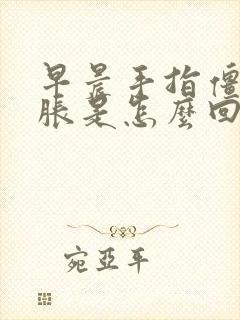 早晨手指僵
脹是怎麼回
宛亞平